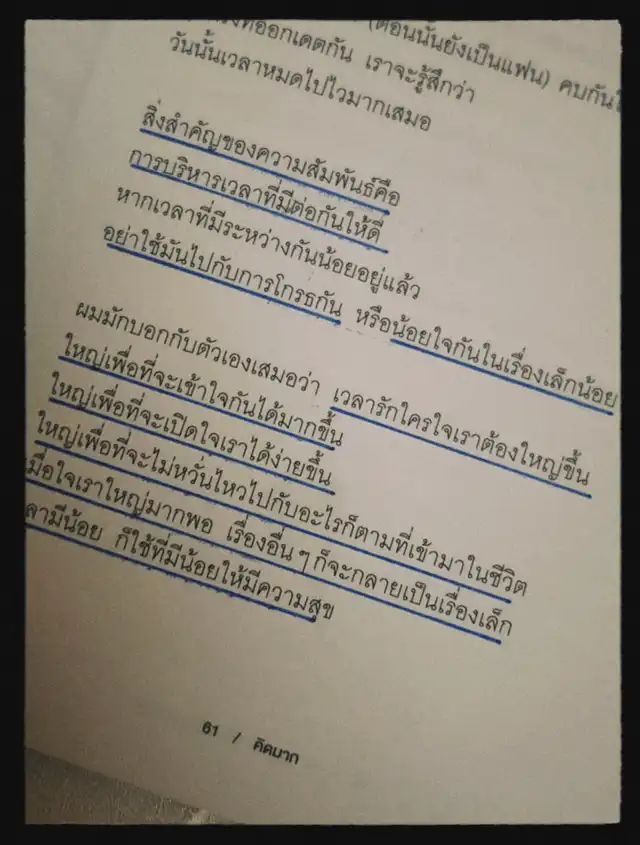 (ตอนนั้นยังเป็นแฟน) คบกัน
ที่ออกเดตกัน เราจะรู้สึกว่า
วันนั้นเวลาหมดไปไวมากเสมอ
สิ่งสำคัญของความสัมพันธ์คือ
การบริหารเวลาที่มีต่อกันให้ดี
หากเวลาที่มีระหว่างกันน้อยอยู่แล้ว
อย่าใช้มันไปกับการโกรธกัน หรือน้อยใจกันในเรื่องเล็กน้อย
ผมมักบอกกับตัวเองเสมอว่า เวลารักใครใจเราต้องใหญ่ขึ้น
ใหญ่เพื่อที่จะเข้าใจกันได้มากขึ้น
ใหญ่เพื่อที่จะเปิดใจเราได้ง่ายขึ้น
ใหญ่เพื่อที่จะไม่หวั่นไหวไปกับอะไรก็ตามที่เข้ามาในชีวิต
เมื่อใจเราใหญ่มากพอ เรื่องอื่นๆ ก็จะกลายเป็นเรื่องเล็ก
ลามีน้อย ก็ใช้ที่มีน้อยให้มีความสุข
61 / คิดมาก